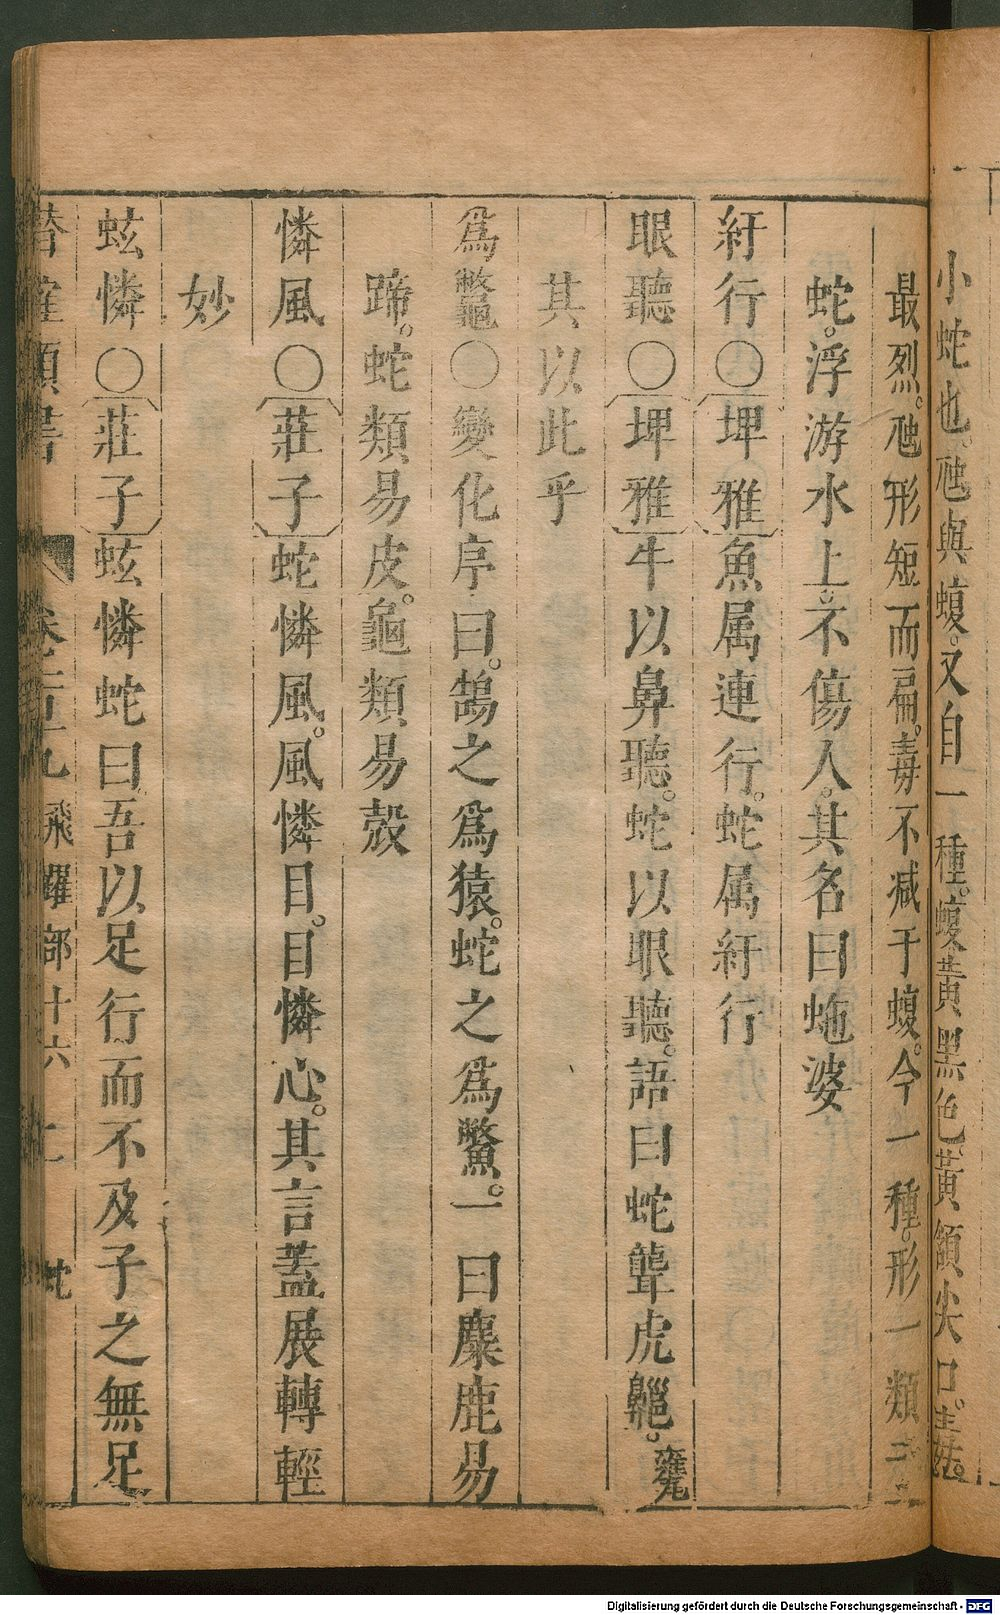 小蛇也。虺與蝮。又自一種。蝮黃黑色。黃頷尖口。
最烈。虺形短而扁。毒不减于蝮。今一種。形一類
蛇。浮游水上。不傷人。其名曰虵婆
紆行○埤雅 魚属連行。蛇属紆行
眼聽○埤雅 牛以鼻聽。蛇以眼聽。語曰蛇聾虎齆。
其以此乎
為鼈○變化序曰。鵠之為猿。蛇之為鱉。一曰麋鹿易
蹄。蛇類易皮。龜類易殼
憐風○莊子 蛇憐風。風憐目。目憐心。其言蓋展轉輕
妙
蚿憐○莊子 蚿憐蛇曰吾以足行而不及子之無足
類書 飛躍部十六 蛇
Digitalisierung gefördert durch die Deutsche Forschungsgemeinschaft - DFG